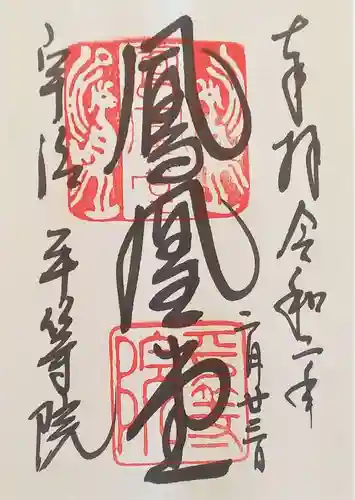 奉拝 令和二年
二月廿三日
鳳凰堂
宇治 平等院
平等院